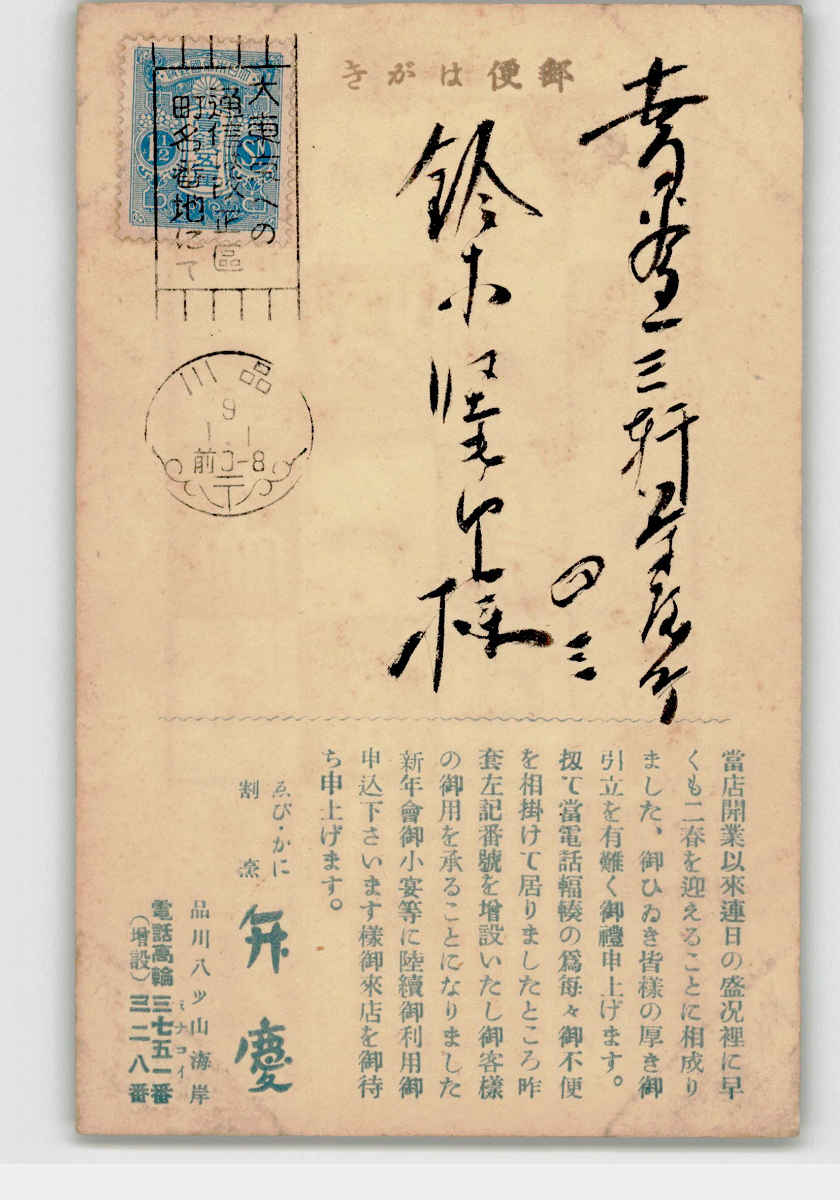 郵便はがき
大東京への
通信は改正區
町名番地にて
品川
9
1.1
前0-8
1½
三軒
四三
鈴木
様
當店開業以來連日の盛况裡に早
くも二春を迎えることに相成り
ました、御ひゐき皆様の厚き御
引立を有難く御禮申上げます。
扨て當電話輻輳の爲每々御不便
を相掛けて居りましたところ昨
套左記番號を增設いたし御客様
の御用を承ることになりました
新年會御小宴等に陸續御利用御
申込下さいます樣御來店を御待
ち申上げます。
ゑび・かに
割烹
弁慶
品川八ツ山海岸
ミナコイ
電話高輪三七五一番
(增設)三二八番